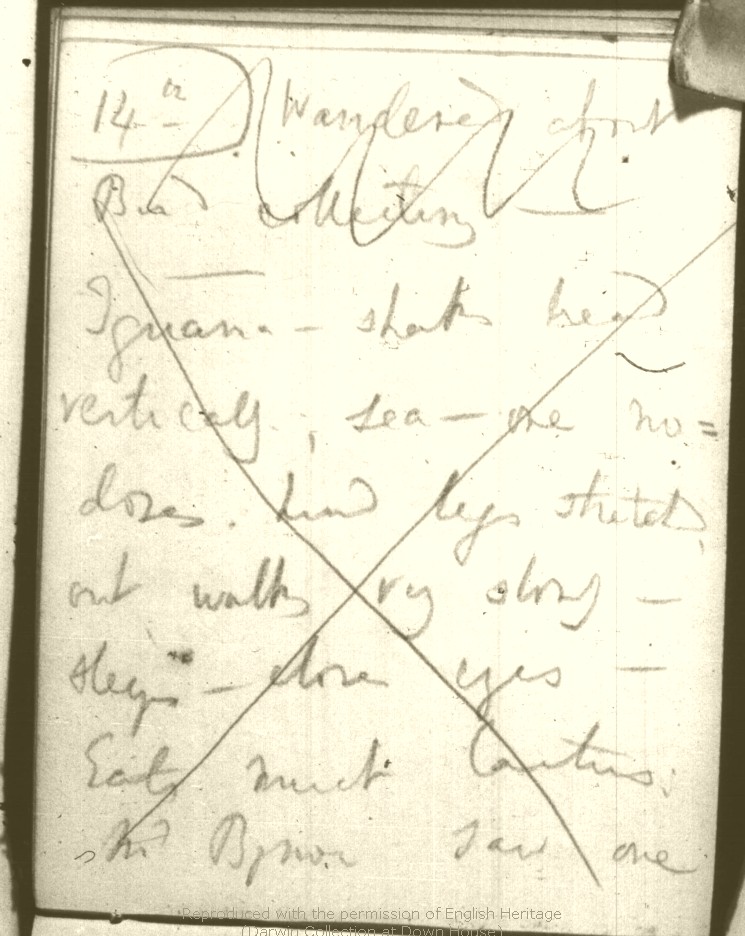 14th Wandered about
Bird collecting —
Iguana — shakes head
vertically; sea — one no =
dozes. hind legs stretched
out walks very slowly —
sleeps — closes eyes —
Eats much Cactus:
Mr Bynoe saw one
Reproduced with the permission of English Heritage
(Darwin Collection at Down House)